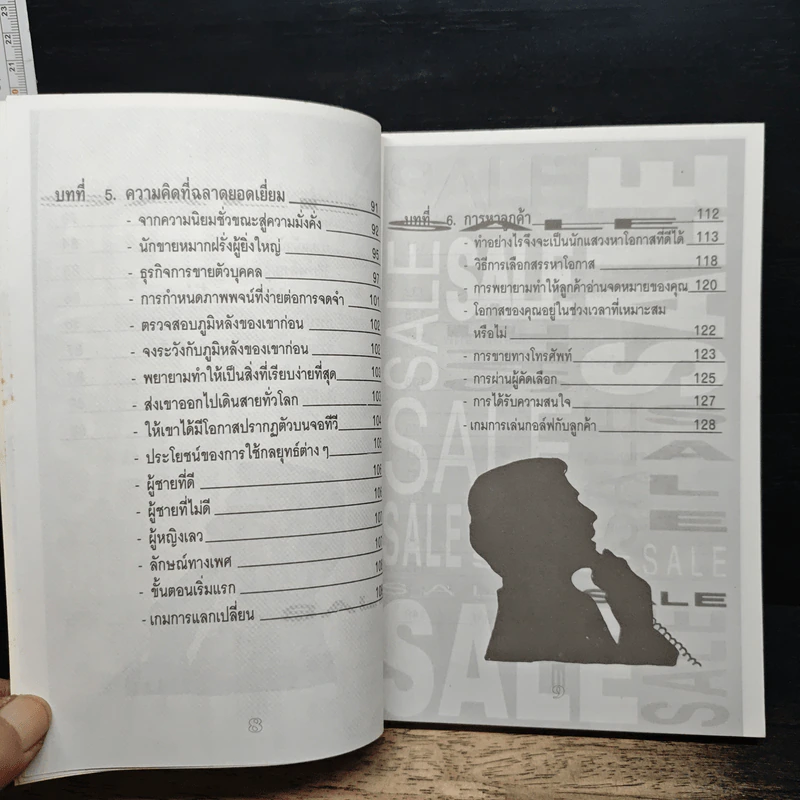 บทที่ 5. ความคิดที่ฉลาดยอดเยี่ยม 91
- จากความนิยมชั่วขณะสู่ความมั่งคั่ง 92
- นักขายหมากฝรั่งผู้ยิ่งใหญ่ 95
- ธุรกิจการขายตัวบุคคล 97
- การกำหนดภาพพจน์ที่ง่ายต่อการจดจำ 101
- ตรวจสอบภูมิหลังของเขาก่อน 102
- จงระวังกับภูมิหลังของเขาก่อน 102
- พยายามทำให้เป็นสิ่งที่เรียบง่ายที่สุด 103
- ส่งเขาออกไปเดินสายทั่วโลก 103
- ให้เขาได้มีโอกาสปรากฏตัวบนจอทีวี 104
- ประโยชน์ของการใช้กลยุทธ์ต่าง ๆ 105
- ผู้ชายที่ดี 106
- ผู้ชายที่ไม่ดี 106
- ผู้หญิงเลว 107
- ลักษณ์ทางเพศ 107
- ขั้นตอนเริ่มแรก 108
- เกมการแลกเปลี่ยน
8
บทที่ 6. การหาลูกค้า 112
- ทำอย่างไรจึงจะเป็นนักแสวงหาโอกาสที่ดีได้ 113
- วิธีการเลือกสรรหาโอกาส 118
- การพยายามทำให้ลูกค้าอ่านจดหมายของคุณ 120
- โอกาสของคุณอยู่ในช่วงเวลาที่เหมาะสม
หรือไม่ 122
- การขายทางโทรศัพท์ 123
- การผ่านผู้คัดเลือก 125
- การได้รับความสนใจ 127
- เกมการเล่นกอล์ฟกับลูกค้า 128
SALE
SALE
SALE
SALE
SALE
SALE
SALE
SALE
SALE
SALE
9